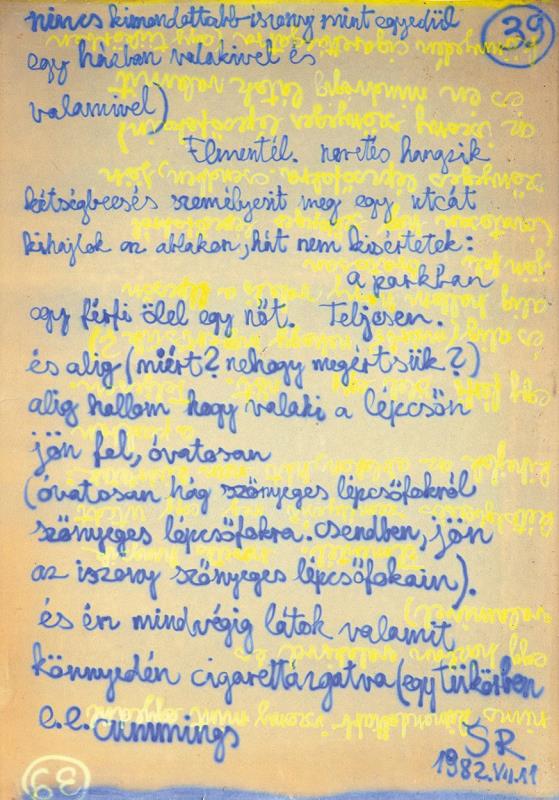 nincs kimondottabb iszony mint egyedül
39
egy házban valakivel és
valamivel)
Elmentél. nevetés hangzik
kétségbeesés személyesit meg egy utcát
kihajlok az ablakon, hát nem kisértetek:
a parkban
egy férfi ölel egy nőt. Teljesen.
és alig (miért? nehogy megértsük?)
alig hallom hogy valaki a lépcsőn
jön fel, óvatosan
(óvatosan hág szőnyeges lépcsőfokról
szőnyeges lépcsőfokra. csendben, jön
az iszony szőnyeges lépcsőfokain).
és én mindvégig látok valamit
könnyedén cigarettázgatva (egy tükörben
e.e. cummings
SR
1982.VII.11
39